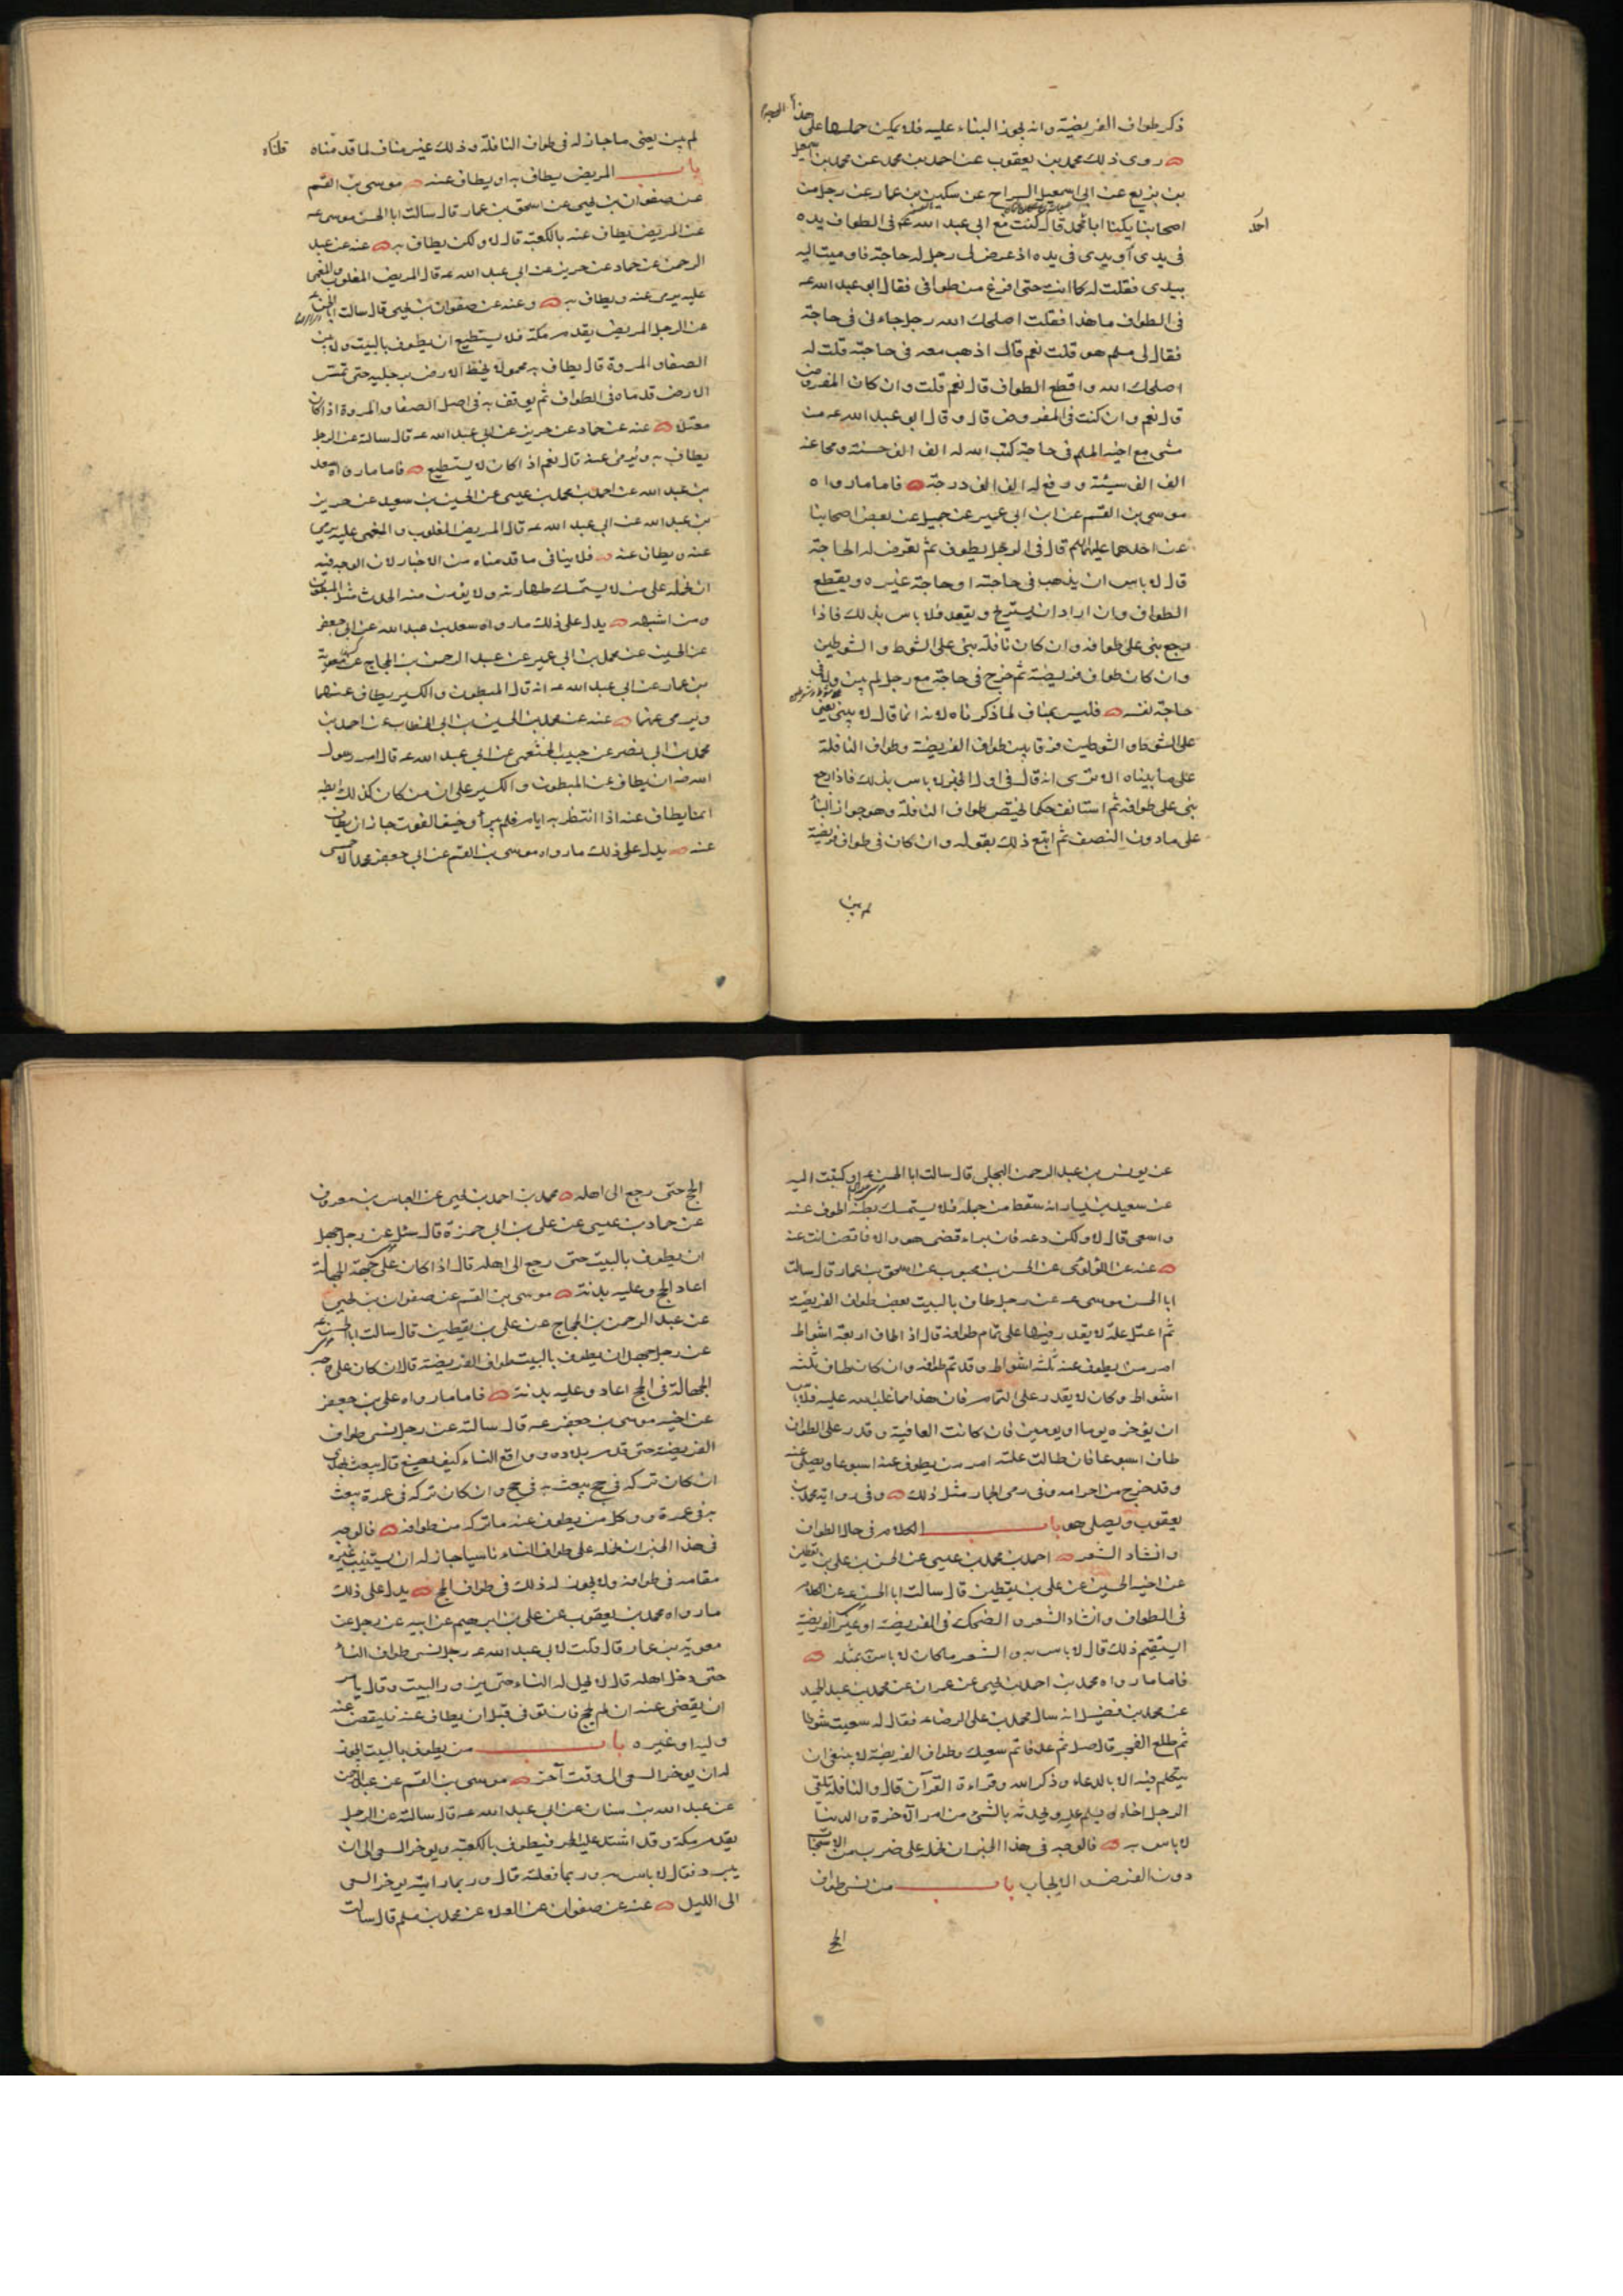 ذكر طواف الفريضة وانه يجوز البناء عليه فلا يمكن حملها على هذا
روى ذلك محمد بن يعقوب عن احمد بن محمد عن محمد بن اسمعيل
بن بزيع عن ابى اسمعيل السراج عن سكين بن عمار عن رجل من
اصحابنا يكنا ابا محمد قال كنت مع ابى عبد الله ع فى الطواف يده
احمد
فى يدى او يدى فى يده اذ عرض لى رجل له حاجة فاوميت اليه
بيدى فقلت له كما انت حتى افرغ من طوافى فقال ابو عبد الله عه
فى الطواف ما هذا فقلت اصلحك الله رجل جاءنى فى حاجة
فقال لى مسلم هو قلت نعم قال اذهب معه فى حاجته قلت له
اصلحك الله واقطع الطواف قال نعم قلت وان كان المفروض
قال نعم وان كنت فى المفروض قال وقال ابو عبد الله عه من
مشى مع اخيه المسلم فى حاجة كتب الله له الف الف حسنة ومحا عنه
الف الف سيئة ورفع له الف الف درجة فاما ما رواه
موسى بن القسم عن ابن ابى عمير عن جميل عن بعض اصحابنا
عن احدهما عليهما السلم قال فى الرجل يطوف ثم تعرض له الحاجة
قال لا باس ان يذهب فى حاجته او حاجة غيره ويقطع
الطواف وان اراد ان يستريح ويقعد فلا باس بذلك فاذا
رجع بنى على طوافه وان كان نافلة بنى على الشوط والشوطين
وان كان طواف فريضة ثم خرج فى حاجة مع رجل لم يبن ولا فى
حاجة نفسه فليس بمناف لما ذكرناه لانه انما قال لا يبنى يعنى
على الشوط والشوطين فرقا بين طواف الفريضة وطواف النافلة
على ما بيناه الا ترى انه قال فى اول الخبر لا باس بذلك فاذا رجع
بنى على طوافه ثم استانف حكما يختص طواف النافلة وهو جواز البناء
على ما دون النصف ثم اتبع ذلك بقوله وان كان فى طواف فريضة
لم يبن
لم يبن يعنى ما جاز له فى طواف النافلة وذلك غير مناف لما قدمناه
قلناه
باب المريض يطاف به او يطاف عنه موسى بن القسم
عن صفوان بن يحيى عن اسحق بن عمار قال سالت ابا الحسن موسى عه
عن المريض يطاف عنه بالكعبة قال لا ولكن يطاف به عنه عن عبد
الرحمن عن حماد عن حريز عن ابى عبد الله عه قال المريض المغلوب والمغمى
عليه يرمى عنه ويطاف به وعنه عن صفوان بن يحيى قال سالت ابا الحسن عه
عن الرجل المريض يقدم مكة فلا يستطيع ان يطوف بالبيت ولا بين
الصفا والمروة قال يطاف به محمولا يخط الارض برجليه حتى تمس
الارض قدماه فى الطواف ثم يوقف به فى اصل الصفا والمروة اذا كان
معتلا عنه عن حماد عن حريز عن ابى عبد الله عه قال سالته عن الرجل
يطاف به ويرمى عنه قال نعم اذا كان لا يستطيع فاما ما رواه سعد
بن عبد الله عن احمد بن محمد بن عيسى عن الحسين بن سعيد عن حريز
بن عبد الله عن ابى عبد الله عه قال المريض المغلوب والمغمى عليه يرمى
عنه ويطاف عنه فلا ينافى ما قدمناه من الاخبار لان الوجه فيه
ان نحمله على من لا يستمسك طهارته ولا يؤمن منه الحدث مثل المبطون
ومن اشبهه يدل على ذلك ما رواه سعد بن عبد الله عن ابى جعفر
عن الحسين عن محمد بن ابى عمير عن عبد الرحمن بن الحجاج عن معوية
بن عمار عن ابى عبد الله عه انه قال المبطون والكسير يطاف عنهما
ويرمى عنهما عنه عن محمد بن الحسين بن ابى الخطاب عن احمد بن
محمد بن ابى نصر عن حبيب الخثعمى عن ابى عبد الله عه قال امر رسول
الله ص ان يطاف عن المبطون والكسير على ان من كان كذلك
انما يطاف عنه اذا انتظر به ايام فلم يبرأ وخيف الفوت جاز ان يطاف
عنه يدل على ذلك ما رواه موسى بن القسم عن ابى جعفر محمد الاحمسى
عن يونس بن عبد الرحمن البجلى قال سالت ابا الحسن عه او كتبت اليه
عن سعيد بن يسار انه سقط من جمله فلا يستمسك بطنه اطوف عنه
واسعى قال لا ولكن دعه فان براء قضى هو والا فاقض انت عنه
عنه عن اللولوى عن الحسن بن محبوب عن اسحق بن عمار قال سالت
ابا الحسن موسى عه عن رجل طاف بالبيت بعض طواف الفريضة
ثم اعتل علة لا يقدر فيها على تمام طوافه قال اذا طاف اربعة اشواط
امر من يطوف عنه ثلثة اشواط وقد تم طوافه وان كان طاف ثلثة
اشواط وكان لا يقدر على التمام فان هذا مما غلب الله عليه فلا باس
ان يؤخره يوما او يومين فان كانت العافية وقدر على الطواف
طاف اسبوعا فان طالت علته امر من يطوف عنه اسبوعا ويصلى عنه
وقد خرج من احرامه وفى رمى الجمار مثل ذلك وفى رواية محمد بن
يعقوب ويصلى هو باب الكلام فى حال الطواف
وانشاد الشعر احمد بن محمد بن عيسى عن الحسن بن على بن يقطين
عن اخيه الحسين عن على بن يقطين قال سالت ابا الحسن عه عن الكلام
فى الطواف وانشاد الشعر والضحك فى الفريضة او غير الفريضة
ايستقيم ذلك قال لا باس به والشعر ما كان لا باس بمثله
فاما ما رواه محمد بن احمد بن يحيى عن عمران عن محمد بن عبد الحميد
عن محمد بن فضيل انه سال محمد بن على الرضا عه فقال له سعيت شوطا
ثم طلع الفجر قال صل ثم عد فاتم سعيك وطواف الفريضة لا ينبغى ان
يتكلم فيه الا بالدعاء وذكر الله وقراءة القرآن قال والنافلة يلقى
الرجل اخاه فيسلم عليه ويحدثه بالشئ من امر الآخرة والدنيا
لا باس به فالوجه فى هذا الخبر ان نحمله على ضرب من الاستحباب
دون الفرض والايجاب باب من نسى طواف
الحج
الحج حتى رجع الى اهله محمد بن احمد بن يحيى عن العباس بن معروف
عن حماد بن عيسى عن على بن ابى حمزة قال سئل عن رجل جهل
ان يطوف بالبيت حتى رجع الى اهله قال اذا كان على جهة الجهالة
اعاد الحج وعليه بدنة موسى بن القسم عن صفوان بن يحيى
عن عبد الرحمن بن الحجاج عن على بن يقطين قال سالت ابا الحسن عه
عن رجل جهل ان يطوف بالبيت طواف الفريضة قال ان كان على وجه
الجهالة فى الحج اعاد وعليه بدنة فاما ما رواه على بن جعفر
عن اخيه موسى بن جعفر عه قال سالته عن رجل نسى طواف
الفريضة حتى قدم بلاده وواقع النساء كيف يصنع قال يبعث بهدى
ان كان تركه فى حج يبعث به فى حج وان كان تركه فى عمرة يبعث
به فى عمرة ووكل من يطوف عنه ما تركه من طوافه فالوجه
فى هذا الخبر ان نحمله على طواف النساء ناسيا جاز له ان يستنيب غيره
مقامه فى طوافه ولا يجوز له ذلك فى طواف الحج يدل على ذلك
ما رواه محمد بن يعقوب عن على بن ابرهيم عن ابيه عن رجل عن
معوية بن عمار قال قلت لابى عبد الله عه رجل نسى طواف النساء
حتى دخل اهله قال لا يحل له النساء حتى يزور البيت وقال يامر
ان يقضى عنه ان لم يحج فان توفى قبل ان يطاف عنه فليقض عنه
وليه او غيره باب من يطوف بالبيت ايجوز
له ان يوخر السعى الى وقت آخر موسى بن القسم عن عبد الرحمن
عن عبد الله بن سنان عن ابى عبد الله عه قال سالته عن الرجل
يقدم مكة وقد اشتد عليه الحر فيطوف بالكعبة ويوخر السعى الى ان
يبرد فقال لا باس به وربما فعلته قال وربما رايته يوخر السعى
الى الليل عنه عن صفوان عن العلاء عن محمد بن مسلم قال سالت